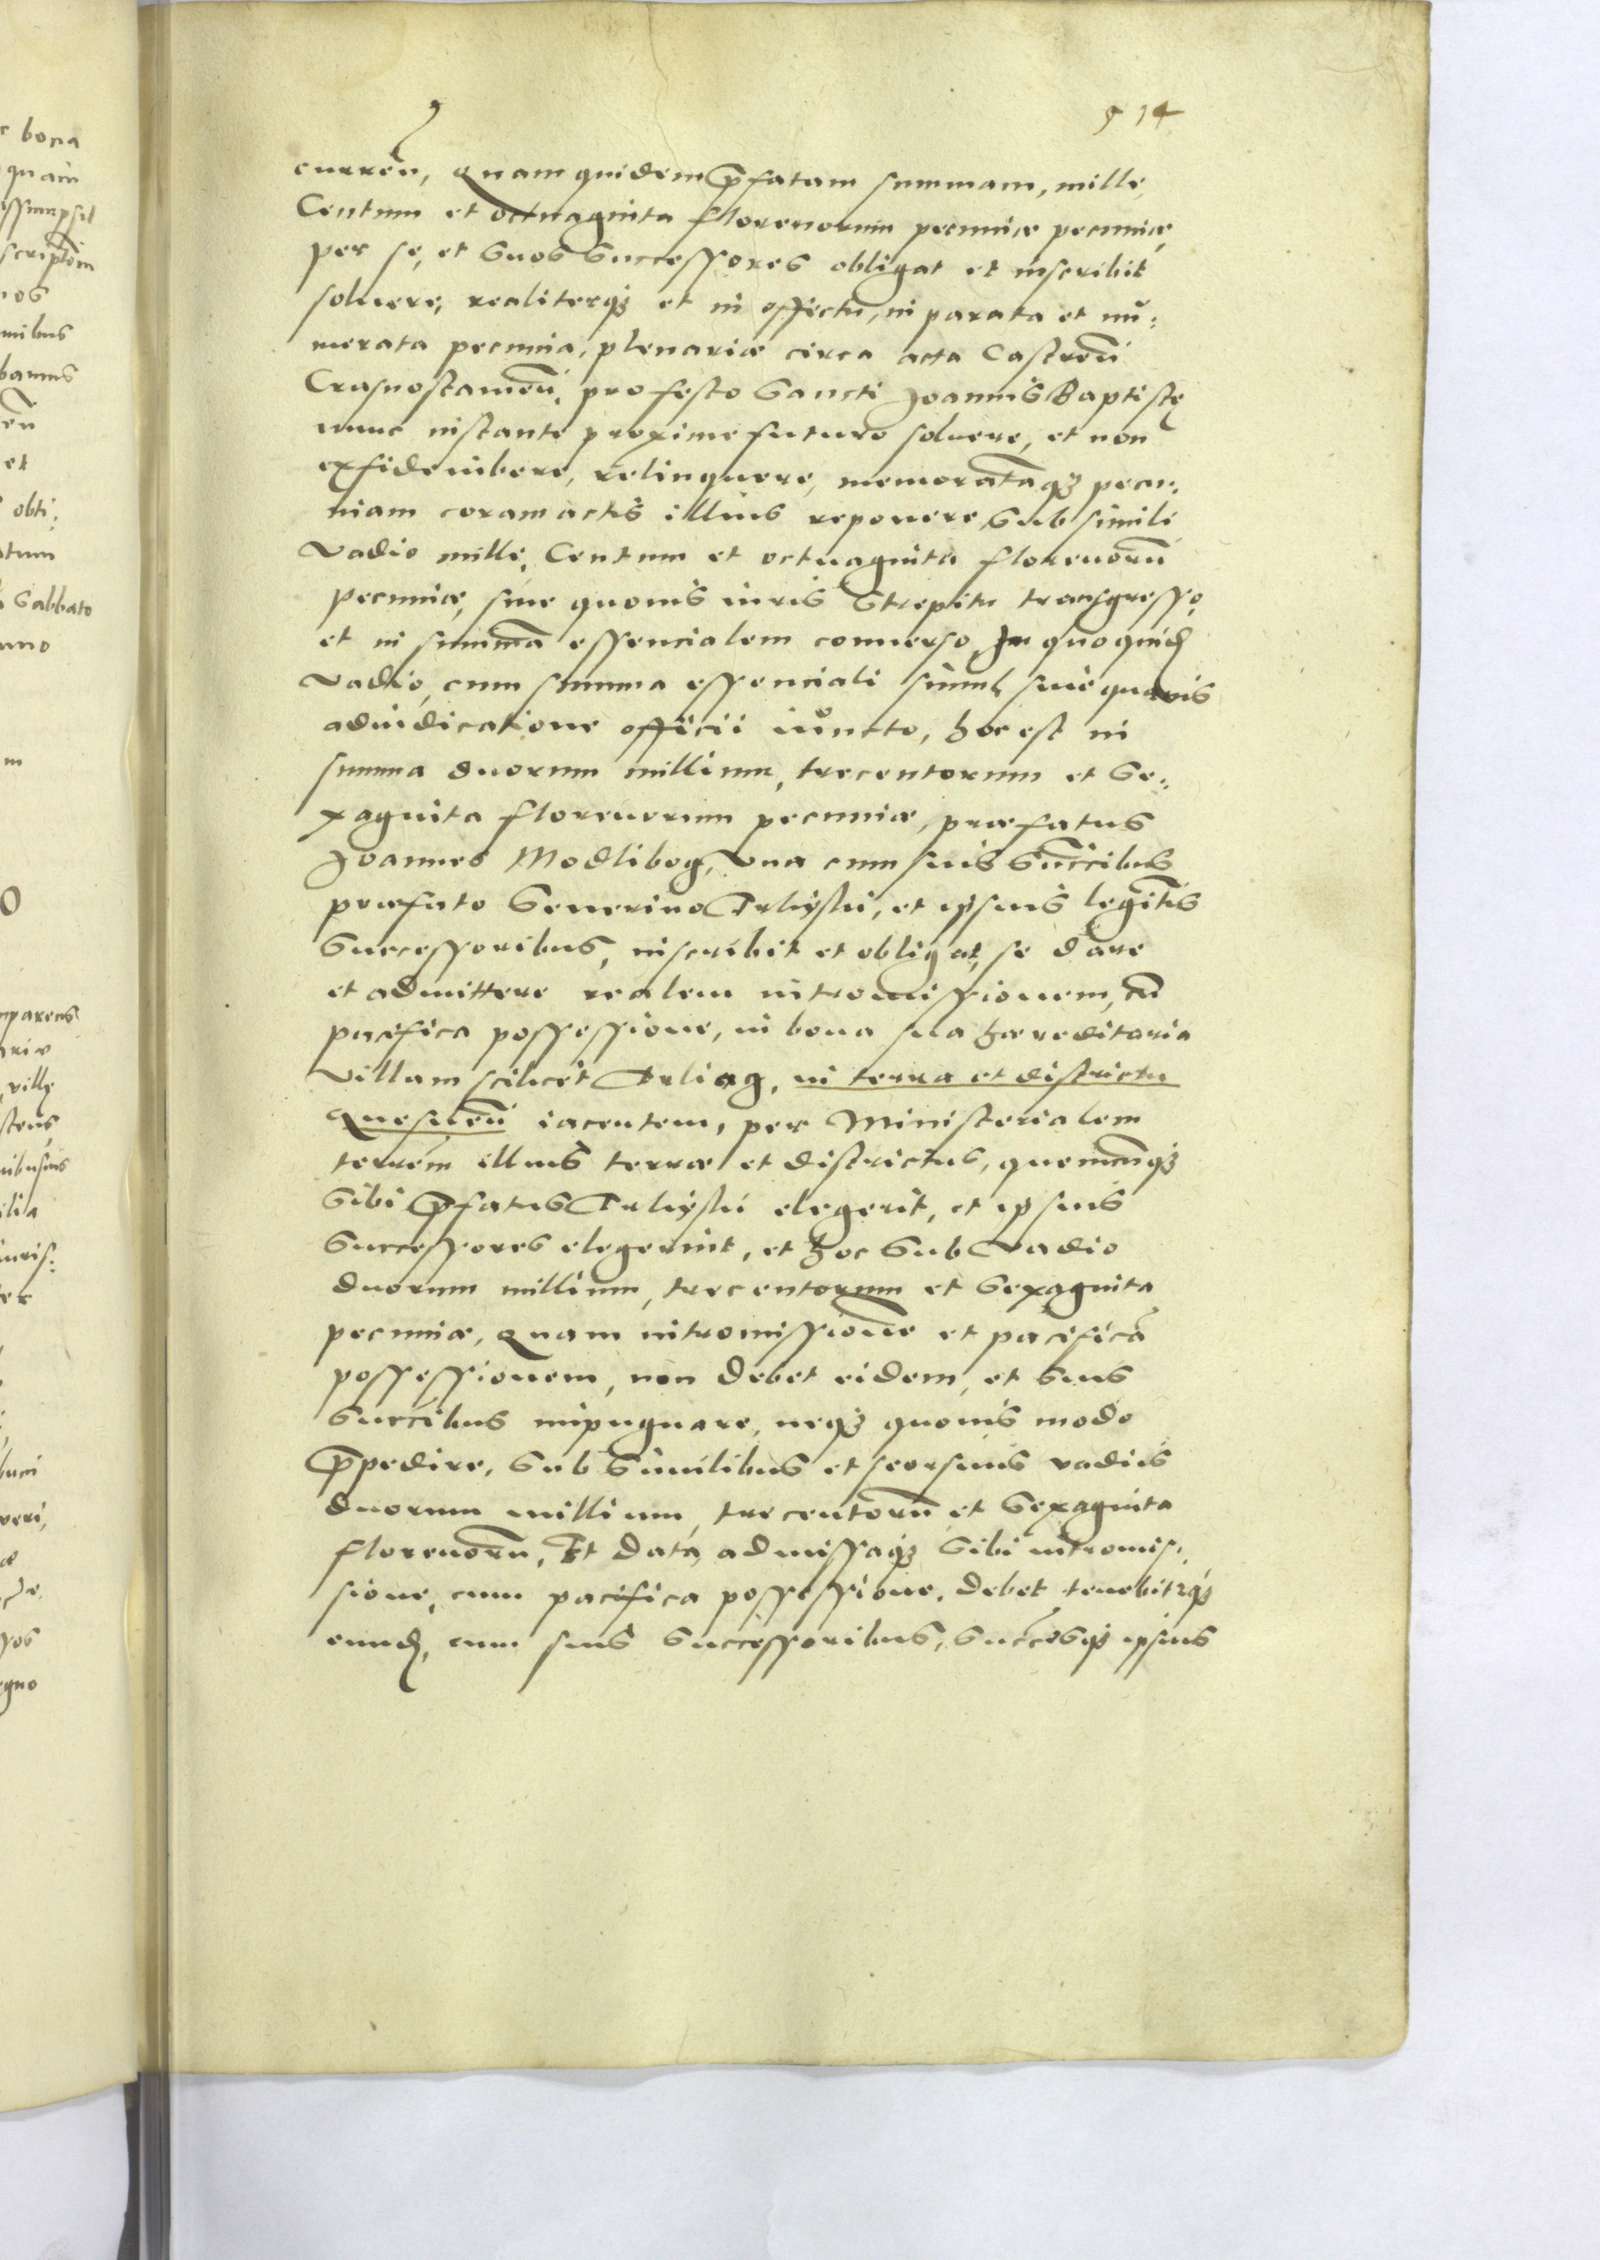 514
curreñ, Quam quidem p̃fatam summam, mille
Centum et octuaginta florenorum pecuniæ pecuniæ,
per se, et suos successores obligat et inscribit
soluere, realiterq3 et in effectu, in parata et nũ:
merata pecunia, plenariæ circa acta Castreñ
Crasnostauieñ, pro festo Sancti Joannis Baptistę
nunc instante proxime futuro soluere, et non
exfideiubere, relinquere, memoratãq3 pecu:
niam coram actis illius reponere, sub simili
vadio mille, Centum et octuaginta florenorũ
pecuniæ, sine quouis iuris strepitu transgresso,
et in summã essencialem conuerso, In quo quid
vadio, cum summa essenciali simul sine quauis
adiudicatione officii iuncto, hoc est in
summa duorum millium, trecentorum et se:
xaginta florenorum pecuniæ, præfatus
Joannes Modlibog, vna cum suis succibus
præfato Seuerino Trlyski, et ipsius legitis
successoribus, inscribit et obligat, se dare
et admittere realem intromissionem, cũ
pacifica possessione, in bona sua hæreditaria
villam scilicet Trliag, in terra et districtu
Quesneñ iacentem, per Ministerialem
terrem illius terræ et districtus, quemcunq3
sibi p̃fatus Trlyski elegerit, et ipsius
successores elegerint, et hoc sub vadio
duorum millium, trecentorum et sexaginta
pecuniæ, Quam intromissione et pacificã
possessionem, non debet eidem, et suis
succibus impugnare, neq3 quouis modo
p̃pedire, sub similibus et seorsiuis vadiis
duorum millium, trecentorũ et sexaginta
florenorũ, Et data, admissaq3 sibi intromis:
sione, cum pacifica possessione, debet tenebitq3
eund, cum suis successoribus, succesq3 ipsius